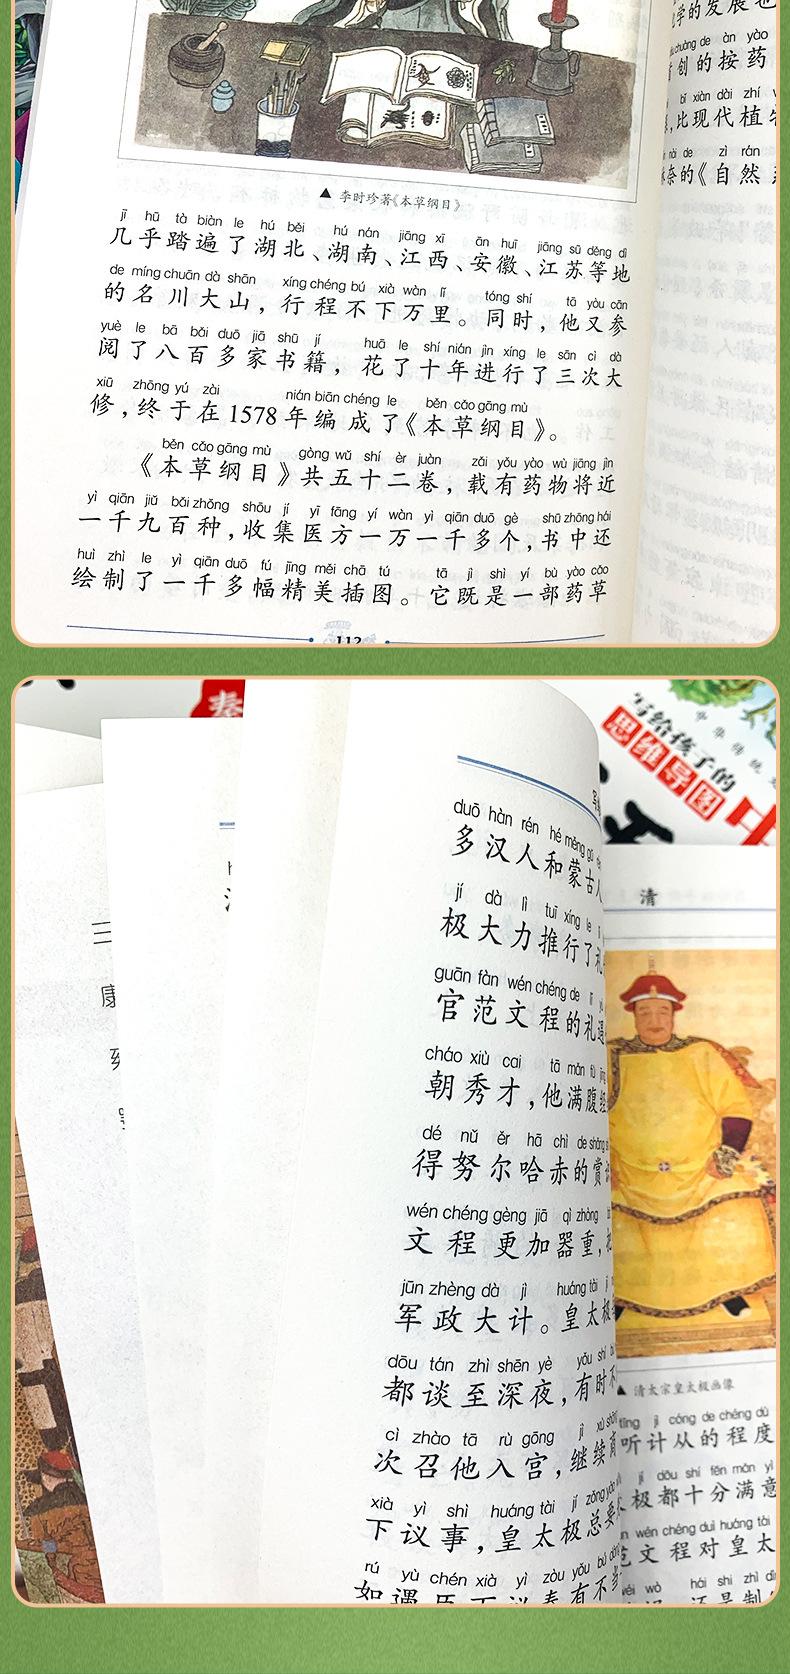 ▲ 李时珍著《本草纲目》
jī hū tà biàn le hú běi hú nán jiāng xī ān huī jiāng sū děng dì
几乎踏遍了湖北、湖南、江西、安徽、江苏等地
de míng chuān dà shān xíng chéng bú xià wàn lǐ tóng shí tā yòu cān
的名川大山，行程不下万里。同时，他又参
yuè le bā bǎi duō jiā shū jí huā le shí nián jìn xíng le sān cì dà
阅了八百多家书籍，花了十年进行了三次大
xiū zhōng yú zài nián biān chéng le běn cǎo gāng mù
修，终于在1578年编成了《本草纲目》。
běn cǎo gāng mù gòng wǔ shí èr juàn zǎi yǒu yào wù jiāng jìn
《本草纲目》共五十二卷，载有药物将近
yì qiān jiǔ bǎi zhǒng shōu jí yī fāng yí wàn yì qiān duō gè shū zhōng hái
一千九百种，收集医方一万一千多个，书中还
huì zhì le yì qiān duō fú jīng měi chā tú tā jì shì yí bù yào cǎo
绘制了一千多幅精美插图。它既是一部药草
112
学的发展也
chuàng de àn yào
创的按药
bǐ xiàn dài zhí
，比现代植
nài de zì rán
奈的《自然
写给孩子的
思维导图
duō hàn rén hé měng gǔ
多汉人和蒙古人
jí dà lì tuī xíng le
极大力推行了礼
guān fàn wén chéng de lǐ
官范文程的礼遇
cháo xiù cai tā mǎn fù
朝秀才，他满腹经
dé nǔ ěr hā chì de shǎng
得努尔哈赤的赏识
wén chéng gèng jiā qì zhòng
文程更加器重，
jūn zhèng dà jì huáng tài jí
军政大计。皇太极
dōu tán zhì shēn yè yǒu shí
都谈至深夜，有时不
cì zhào tā rù gōng jì xù
次召他入宫，继续商
xià yì shì huáng tài jí zǒng yào
下议事，皇太极总要
rú yù chén xià yì zòu yǒu bú
如遇臣下议奏有不
清
▲ 清太宗皇太极画像
tīng jì cóng de chéng dù
听计从的程度
jí dōu shí fēn mǎn yì
极都十分满意
wén chéng duì huáng tài
范文程对皇太
wéi wǒ hái shi zhì
还是制
康